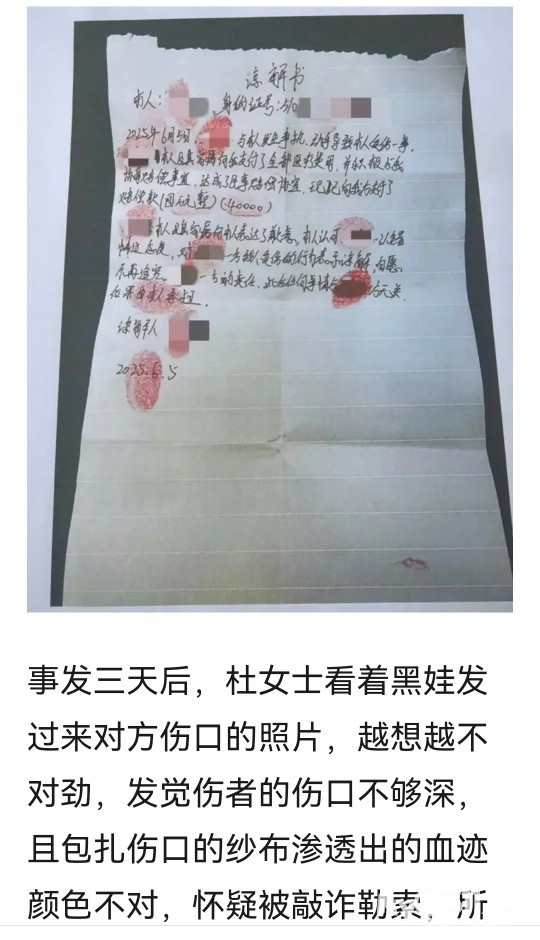 谅解书
本人: 身份证号:510
2025年6月5日 与本人发生事故,动手导致本人受伤一事,
本人及其家属向我支付了全部医疗费用,并积极与我
协商赔偿事宜,达成了民事赔偿协议,现已向我方支付了
赔偿款(四万元整)(40000)
本人及其家属向本人表达了歉意,本人认可 认错
悔过态度,对 一方致人受伤的行为表示谅解,自愿
不再追究 的责任,此后任何事情与 方无关
后果由本人承担.
谅解人
2025.6.5
事发三天后,杜女士看着黑娃发
过来对方伤口的照片,越想越不
对劲,发觉伤者的伤口不够深,
且包扎伤口的纱布渗透出的血迹
颜色不对,怀疑被敲诈勒索,所